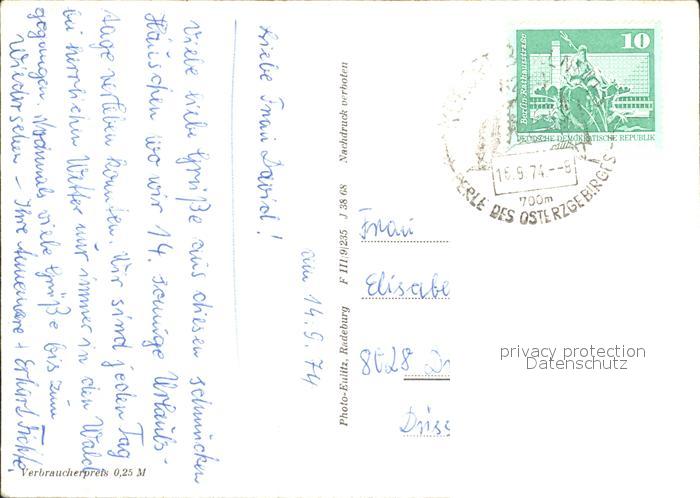 am 14.9.74
Liebe Frau David!
Viele liebe Grüße aus diesen schmucken
Häuschen wo wir 14. sonnige Urlaubs-
tage verleben konnten. Wir sind jeden Tag
bei herrlichen Wetter nur immer in den Wald
gegangen. Nochmals viele Grüße bis zum
Wiedersehen – Ihre Annemarie + Erhard
Verbraucherpreis 0,25 M
Photo-Eulitz, Radeburg F III/9/235 J 38 68 Nachdruck verboten
10
Berlin Rathausstraße
DEUTSCHE DEMOKRATISCHE REPUBLIK
16.9.74.--8
700m
PERLE DES OSTERZGEBIRGES
Frau
Elisabe
8028 Dr
Düss
privacy protection
Datenschutz